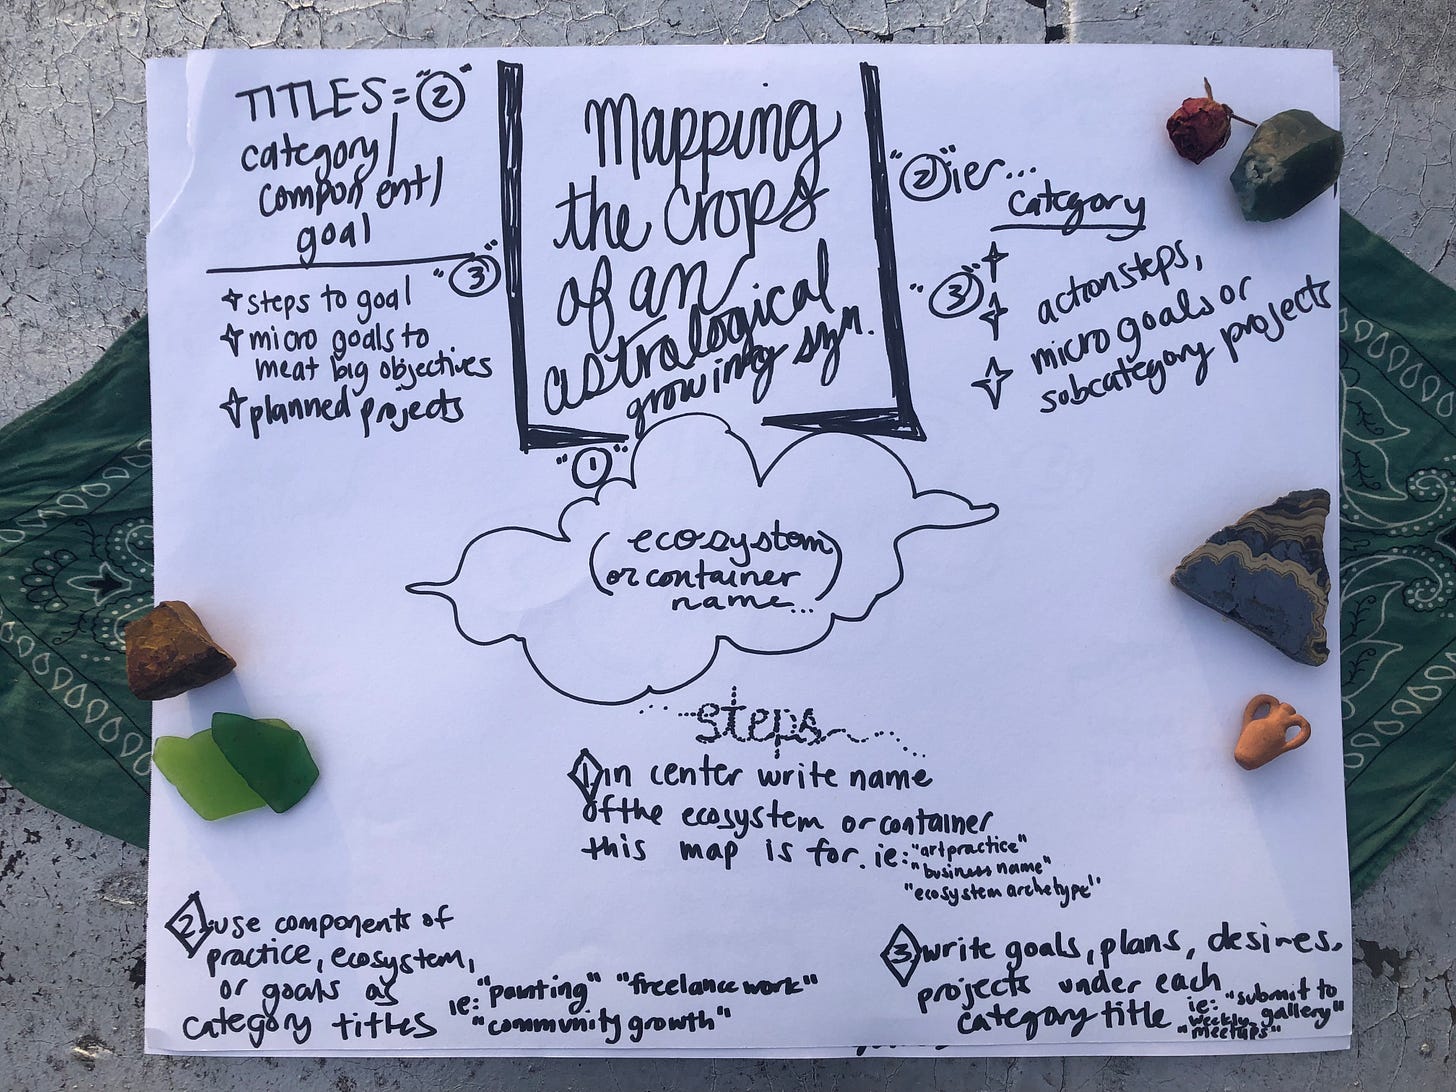 TITLES = "2"
category/
component/
goal
"3"
steps to goal
micro goals to
meat big objectives
planned projects
Mapping
the crops
of an
astrological
growing szn.
"2" ier...
category
"3"
action steps,
micro goals or
subcategory projects
"1"
(ecosystem
or container
name...)
steps
1 in center write name
of the ecosystem or container
this map is for. ie: "art practice"
"business name"
"ecosystem archetype"
2 use components of
practice, ecosystem,
or goals as
category titles
ie: "painting" "freelance work"
"community growth"
3 write goals, plans, desires,
projects under each
category title ie: "submit to
gallery"
"weekly
meetups"